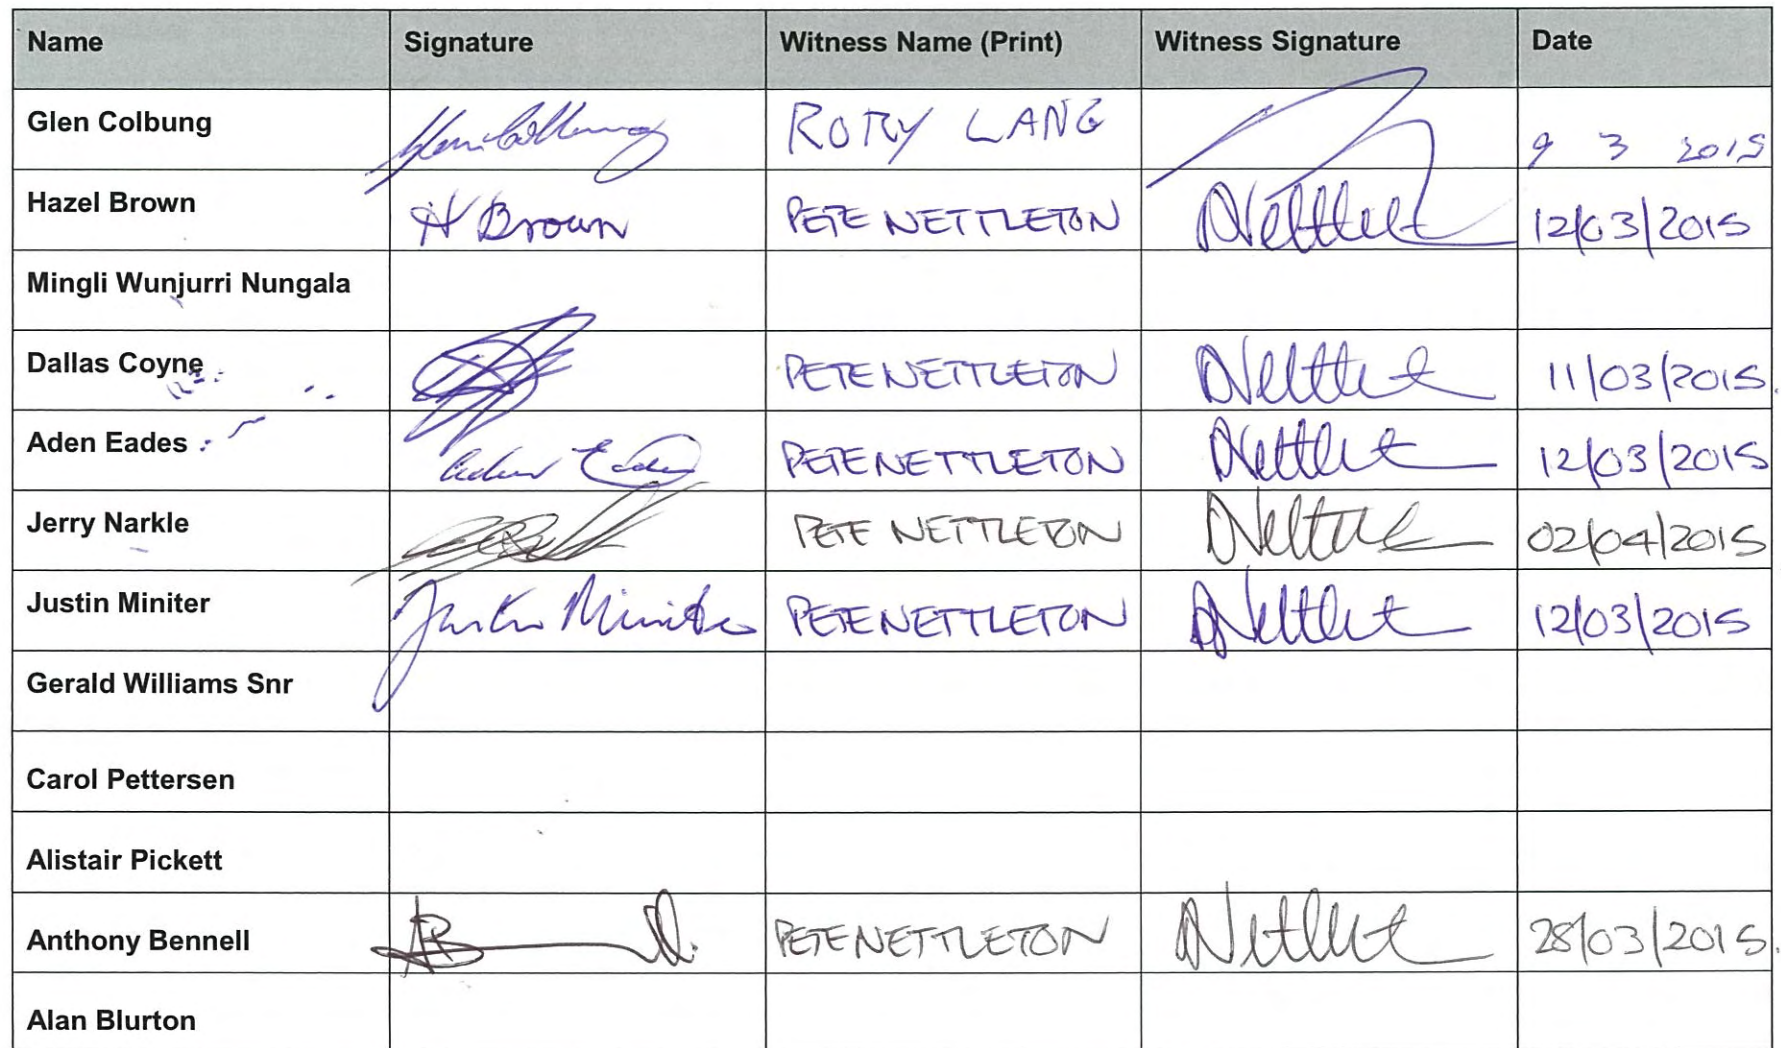 Name Signature Witness Name (Print) Witness Signature Date
Glen Colbung RORY LANG 9 3 2015
Hazel Brown H Brown PETE NETTLETON 12/03/2015
Mingli Wunjurri Nungala
Dallas Coyne PETE NETTLETON 11/03/2015.
Aden Eades Aden Eades PETE NETTLETON 12/03/2015
Jerry Narkle PETE NETTLETON 02/04/2015
Justin Miniter Justin Miniter PETE NETTLETON 12/03/2015
Gerald Williams Snr
Carol Pettersen
Alistair Pickett
Anthony Bennell PETE NETTLETON 28/03/2015.
Alan Blurton